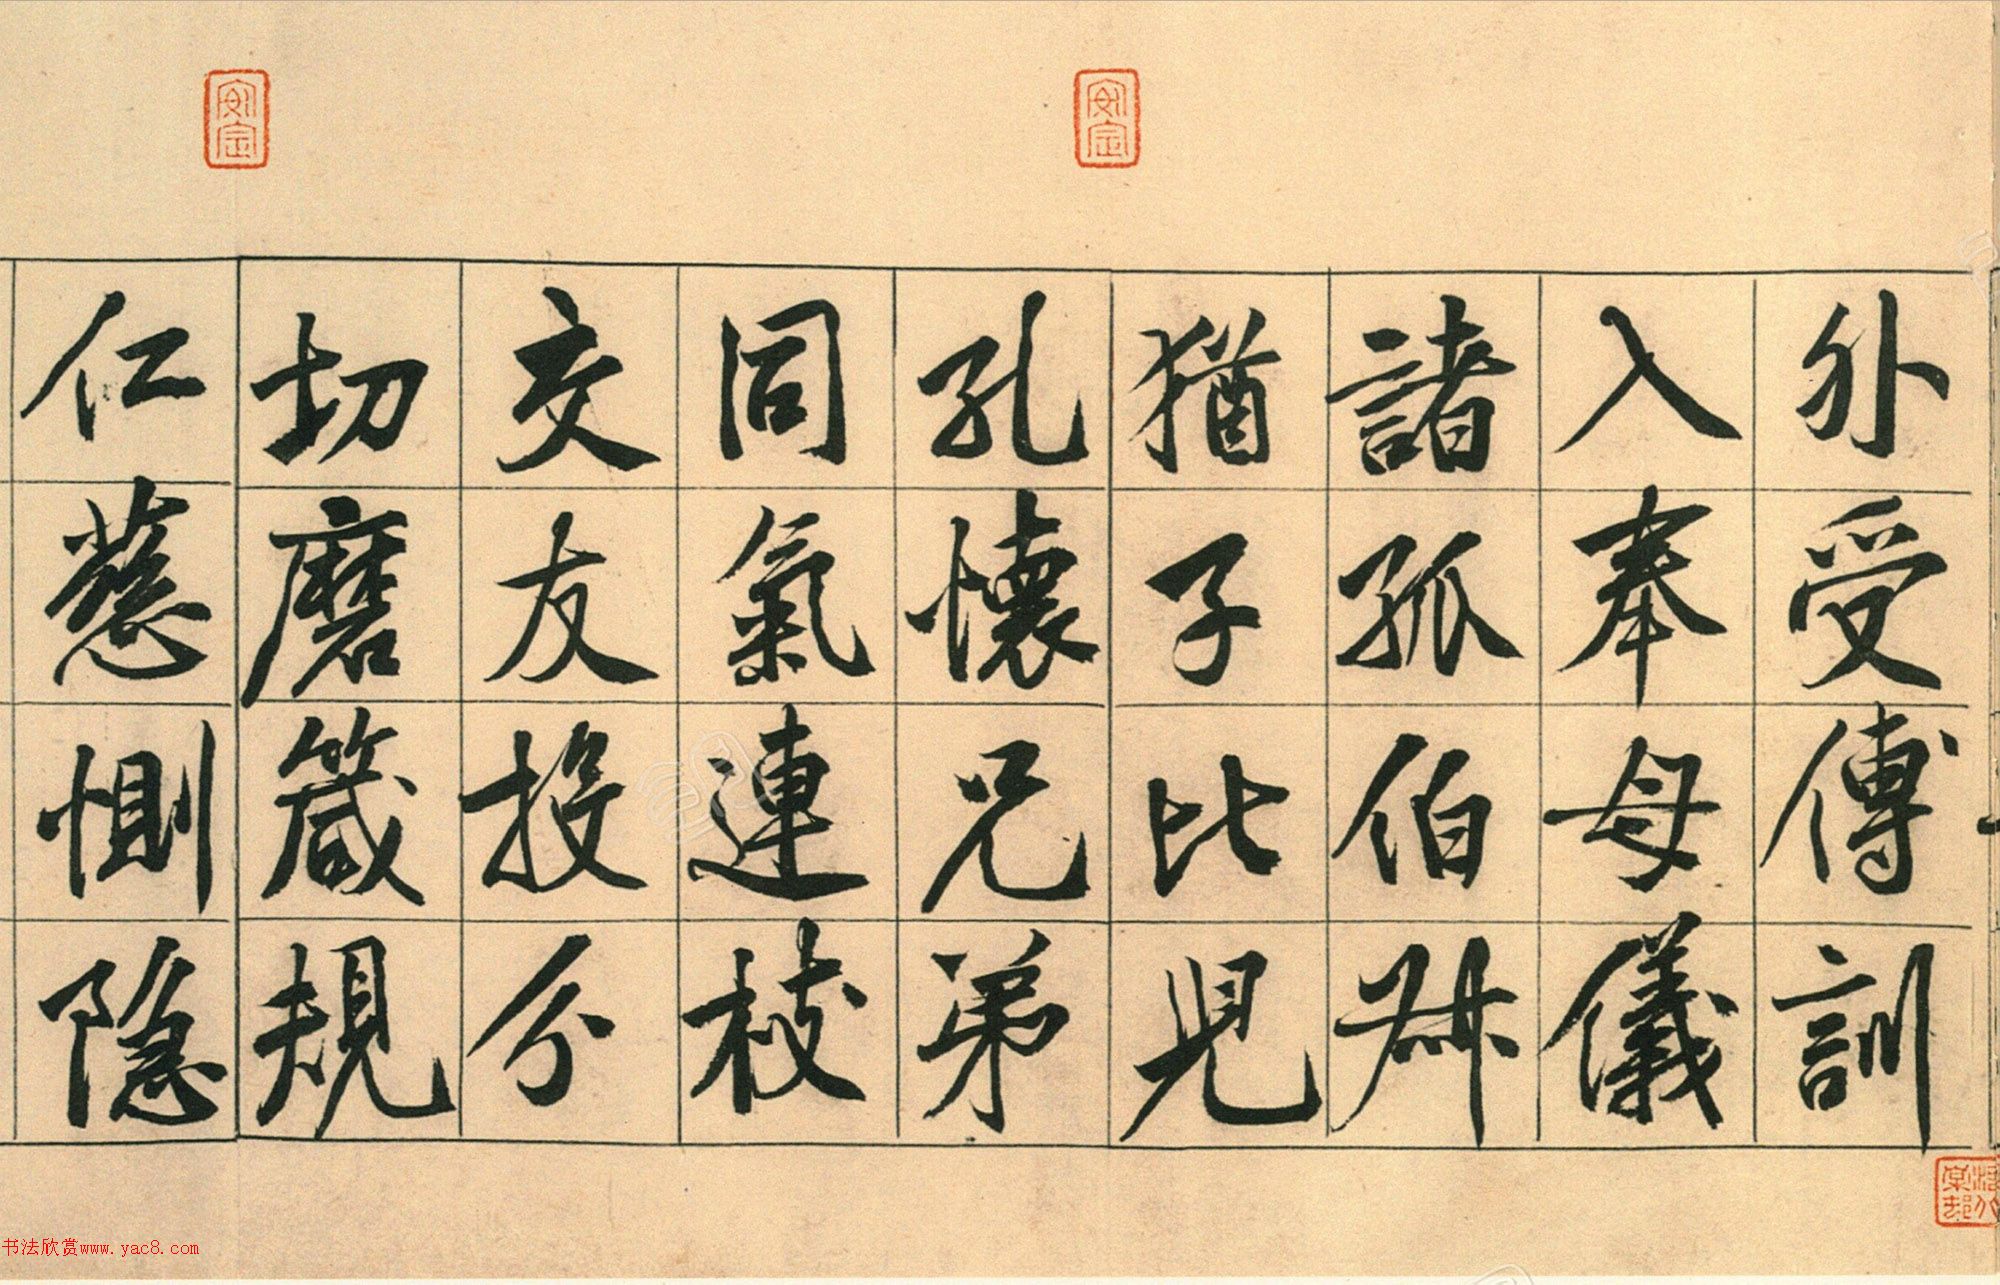 外受傳訓
入奉母儀
諸孤伯姊
猶子比兒
孔懷兄弟
同氣連枝
交友投分
切磨箴規
仁慈惻隐
书法欣赏www.yac8.com